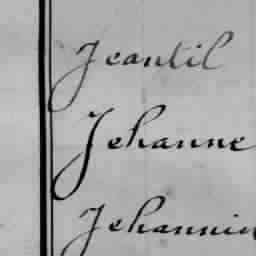 Jeantil
Jehanne
Jehannin